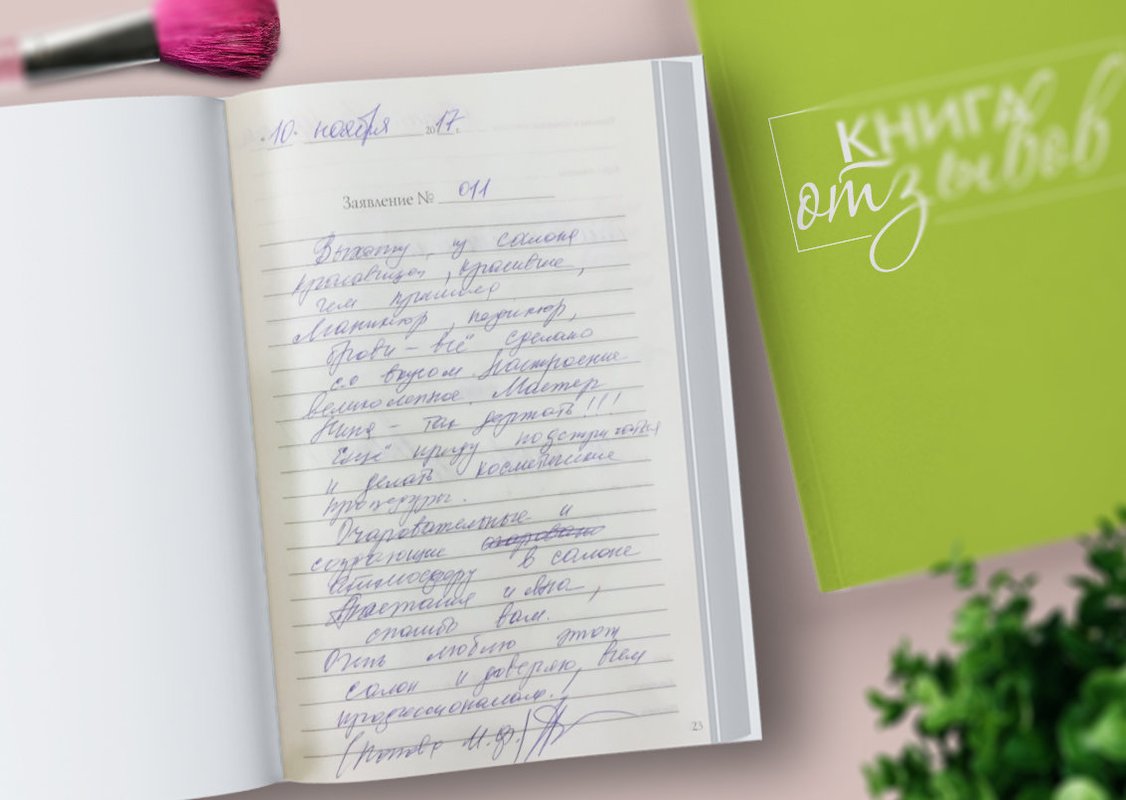 10 ноября 2017 г.
Заявление № 011
Выхожу из салона
красавицей, красивше,
чем пришла
Маникюр, педикюр,
брови – всё сделано
со вкусом. Настроение
великолепное. Мастер
Нина – так держать!!!
Ещё приду подстригаться
и делать косметические
процедуры.
Очаровательные и
создающие
атмосферу в салоне
Анастасия и Яна,
спасибо вам.
Очень люблю этот
салон и доверяю, всем
профессионалам.
(Попова И.Ф.)
23
КНИГА
отзывов